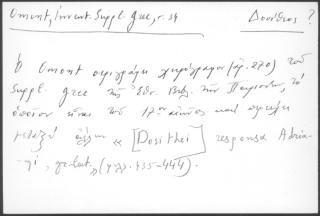 Omont, Invent. Suppl. grec, σ. 34 Δοσίθεος ?
Ὁ Omont περιγράφει χειρόγραφον (ἀρ. 270) τοῦ
Suppl. grec τῆς Ἐθν. Βιβ. τῶν Παρισίων, τὸ
ὁποῖον εἶναι τοῦ 17ου αἰῶνος καὶ
μεταξὺ ἄλλων « [Dosithei] responsa Adria-
ni, gr.-lat. » (φύλλ. 435-444).